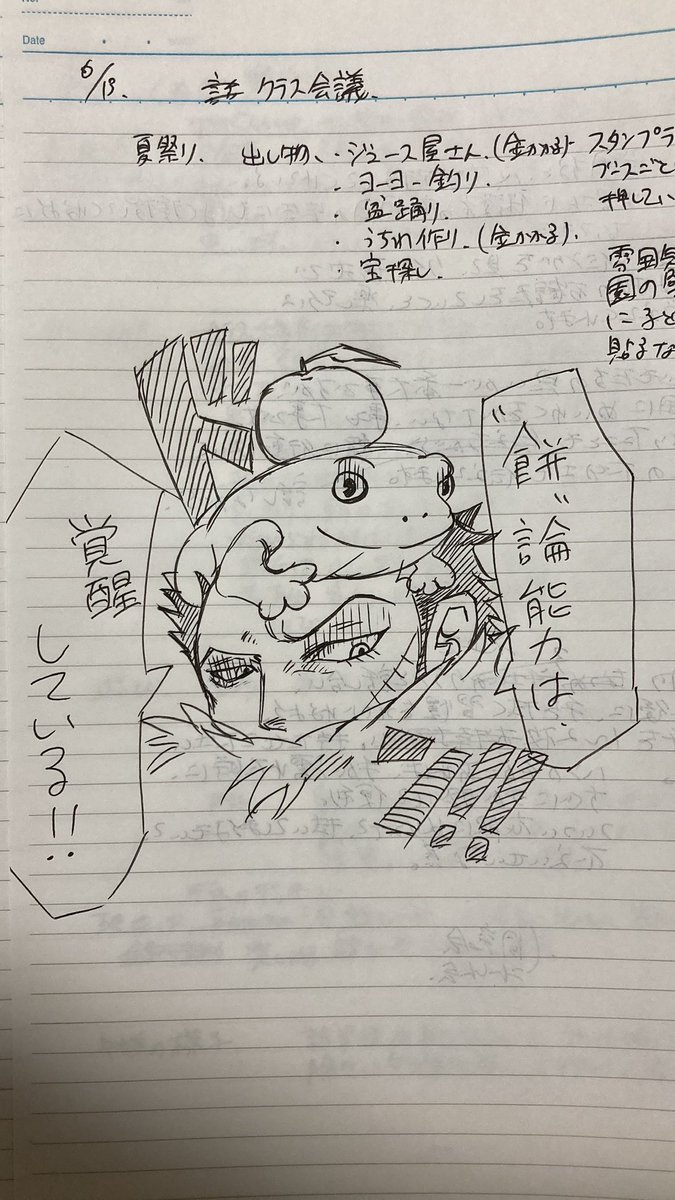 Date
クラス会議
夏祭り、出し物、・ジュース屋さん.(金かかる)
・ヨーヨー釣り.
・盆踊り.
・うちわ作り.(金かかる).
・宝探し.
スタンプラ
ブースごと
押してい
雰囲気
園の
に子ど
貼るな
"餅"論能力は.
覚醒
している!!